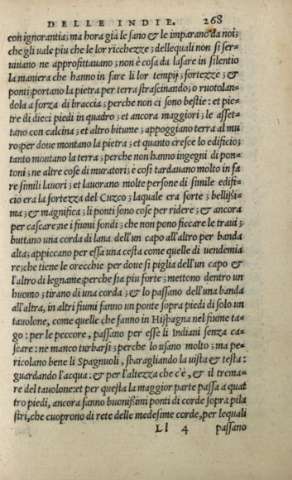 DELLE INDIE. 268
con ignorantia; ma hora già le sano & le imparano da noi;
che gli vale piu che le lor ricchezze; dellequali non si ser-
uiuano ne approfittauano; non è cosa da lasare in silentio
la maniera che hanno in fare li lor tempij; fortezze; &
ponti; portano la pietra per terra strascinando; o ruotolan-
dola a forza di braccia; perche non ci sono bestie: et pie-
tre di dieci piedi in quadro; et ancora maggiori; le asset-
tano con calcina; et altro bitume; appoggiano terra al mu
ro; per doue montano la pietra; et quanto cresce lo edificio;
tanto montano la terra; perche non hanno ingegni di pon-
toni; ne altre cose di muratori; e cosi tardauano molto in fa
re simili lauori; et lauorano molte persone di simile edifi-
cio era la fortezza del Cuzco; laquale era forte; bellissi-
ma; & magnifica; li ponti sono cose per ridere; & ancora
per cascare; ne i fiumi fondi; che non pono ficcare le traui;
buttano una corda di lana dell'un capo all'altro per banda
alta; appiccano per essa una cesta come quelle di uendemia
re; che tiene le orecchie per doue si piglia dell'un capo &
l'altro di legname; perche sta piu forte; mettono dentro un
huomo; tirano di una corda; & lo passano dell'una banda
all'altra, in altri fiumi fanno un ponte sopra piedi di solo un
tauolone, come quelle che fanno in Hispagna nel fiume ta-
go: per le peccore, passano per esse li Indiani senza ca-
scare: ne manco turbarsi; perche lo usano molto: ma pe-
ricolano bene li Spagnuoli, sbaragliando la uista & testa:
guardando l'acqua: & per l'altezza che c'è, & il trema-
re del tauolone: et per questa la maggior parte passa a quat
tro piedi, ancora fanno buonissimi ponti di corde sopra pila
stri, che cuoprono di rete delle medesime corde, per lequali
Ll 4 passano